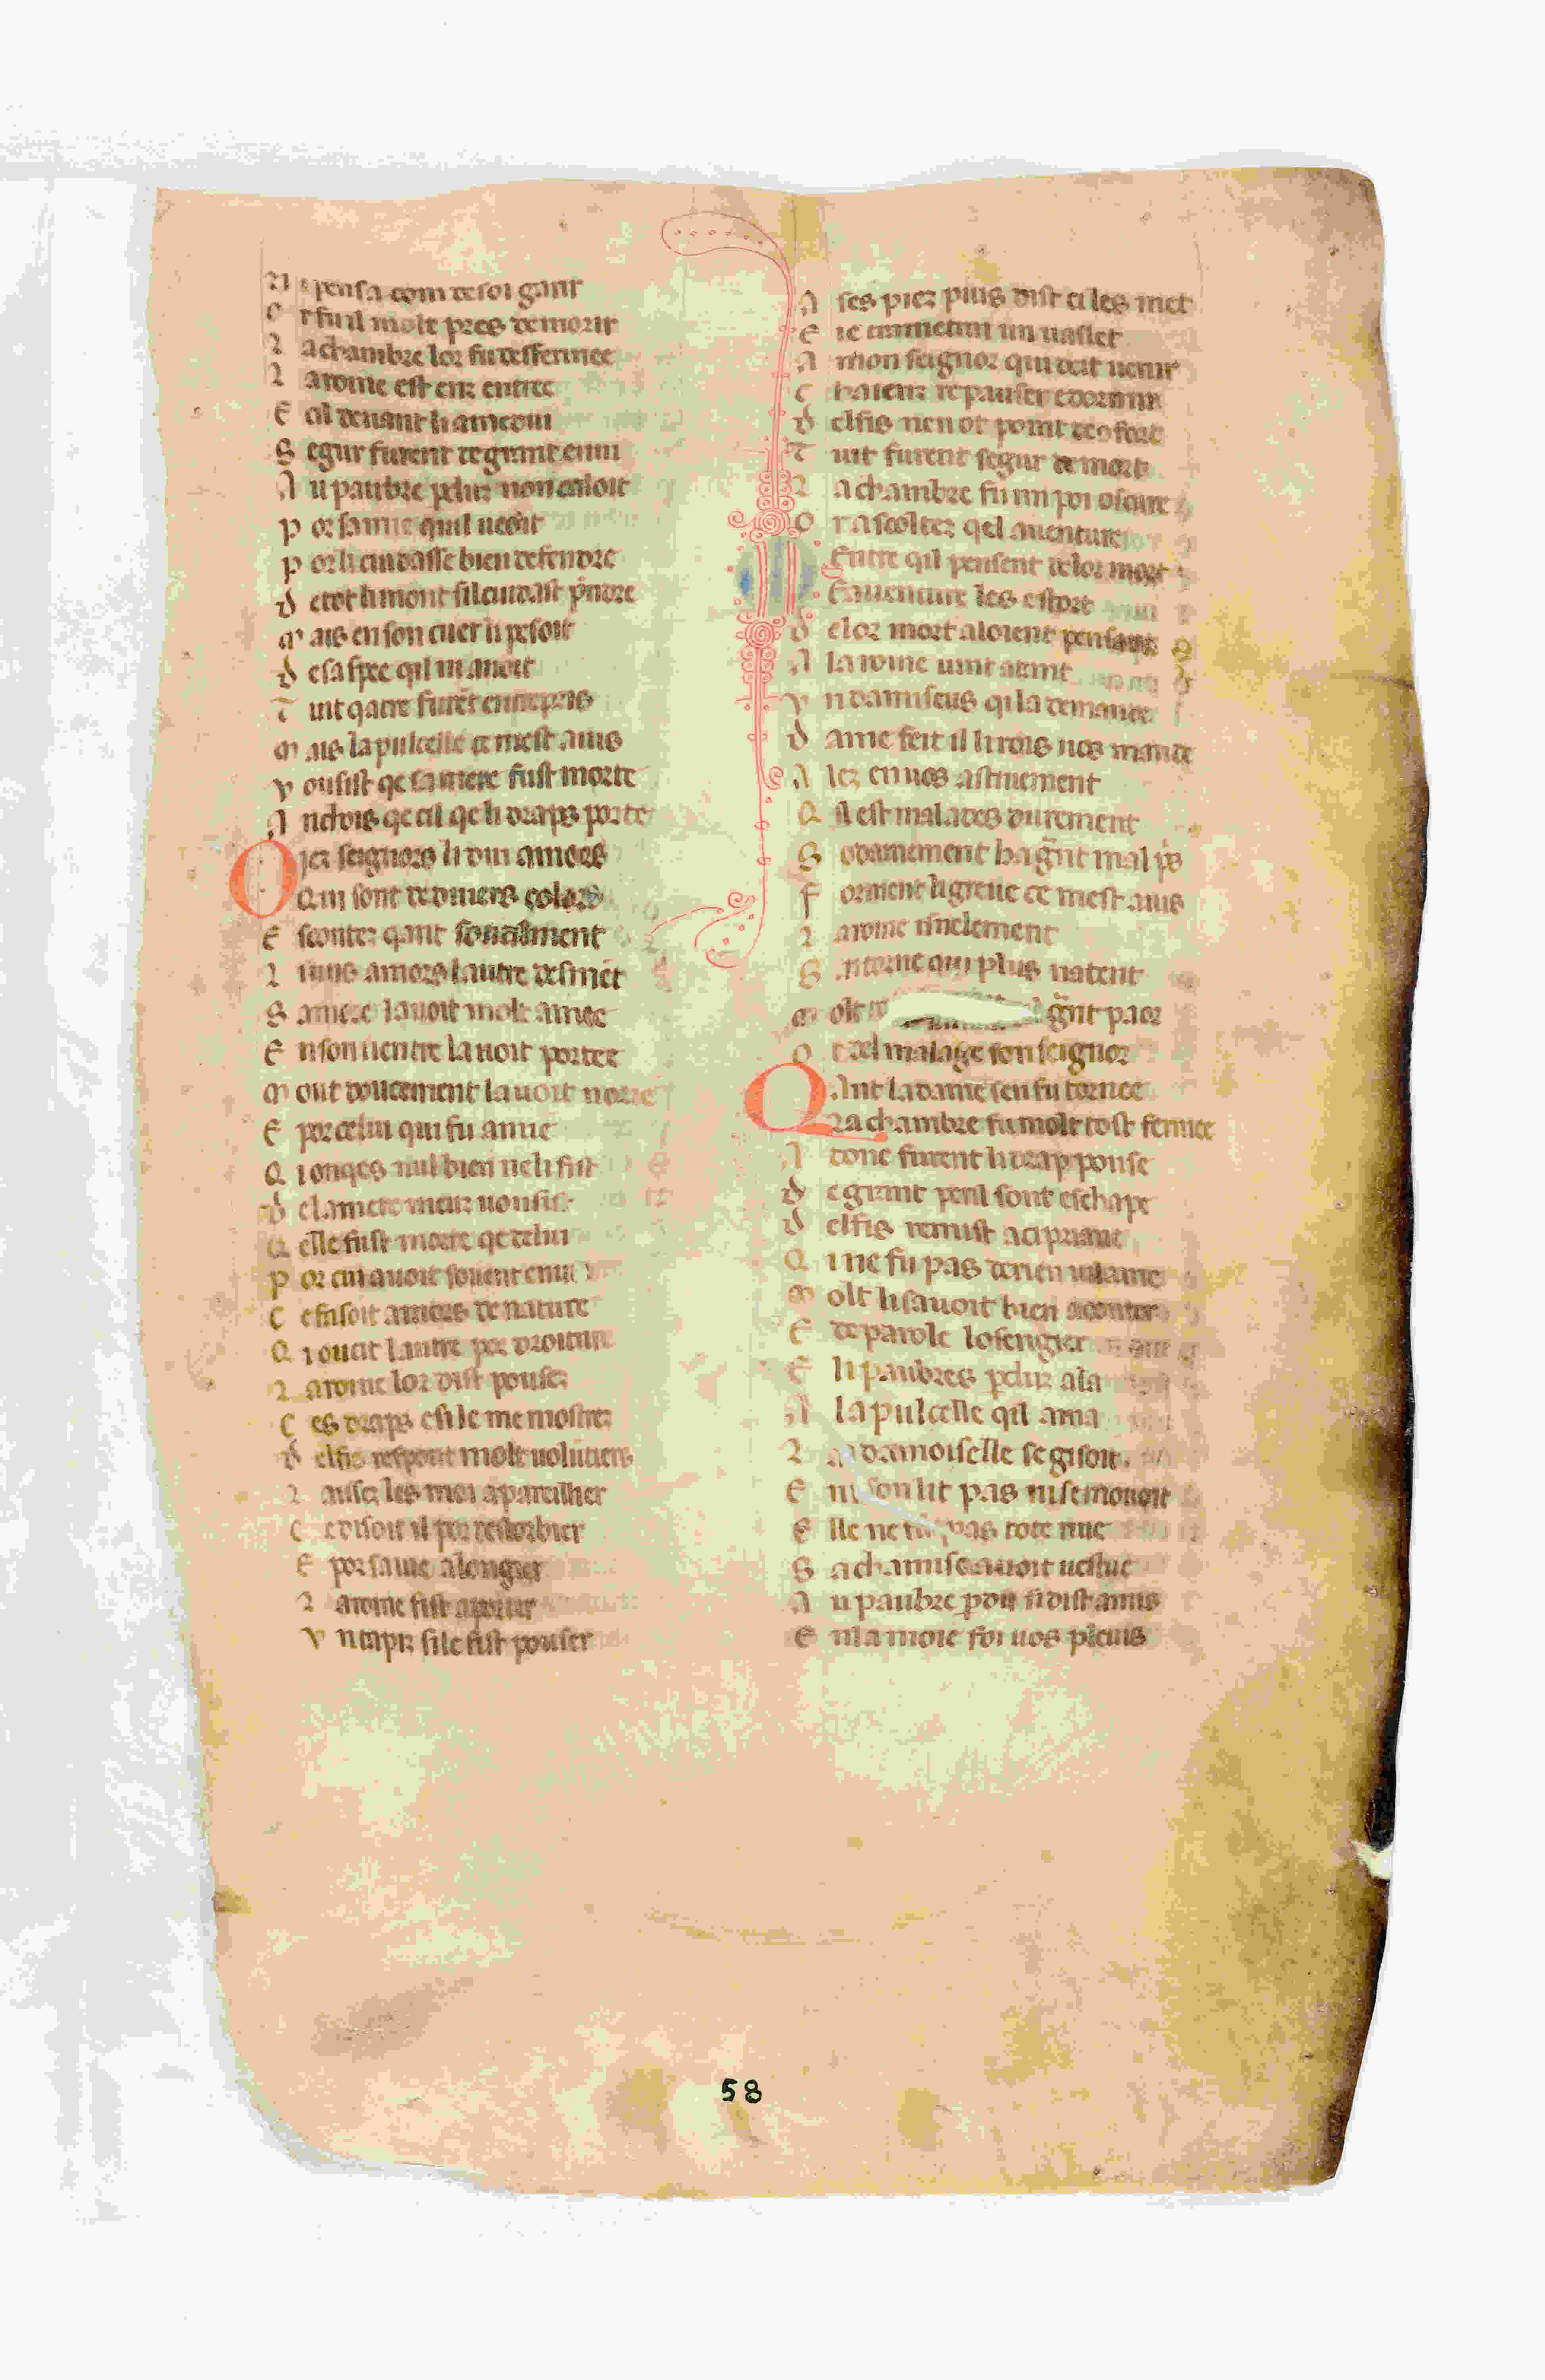 pensa com de soi gant
O r fu il molt pres de morir
L a chambre lor fu desfermee
L a roine est enz entree
E cil denant li
S egur furent de grant enui
A u paubre pdu non caloit
P or samie quil ueoit
P or li cuidasse bien defendre
D e tot li mont sil cuidast pndre
M ais en son cuer li pesoit
D e sa qil
T uit qatre furēt entrepris
M ais la pulcelle ce mest auis
V ousist qe sa mere fust morte
A nchois qe cil qe li draps porte
O iez seignors li dui amors
Q ui sont de diuers colors
E scoutez qant soutilment
L une amors lautre desmēt
S a mere lauoit molt amee
E n son uentre lauoit portee
M out doucement lauoit norre
E por celui qui fu amie
Q i onqes nul bien ne li fist
D e la mere meuz uousist
Q elle fust morte qe celui
P or cui auoit souent enui
C e fasoit amors de nature
Q i uent lautre per droiture
L a roine lor dist pousez
C es draps esi le me mostrez
D elfis respont molt uolūtiers
L aisez les moi apareilher
C e disoit il por destorbier
E por sa uie alongier
L a roine fist aporter
V n tapiz si le fist pouser
A ses piez puis dist ci les met
E ie un uaslet
A mon seignor qui doit uenir
C haienz repauser e dormir
D elfis nen ot point de cōfort
T uit furent segur de mort
L a chambre fu un poi oscure
O r ascoltez qel auenture
Entre qil pensent de lor mort
E auenture les estort
D e lor mort aloient pensant
A la roine uint atant
V n damiseus qi la demande
D ame feit il li rois uos mande
A lez en uos astiuement
Q il est malades durement
S odainement ha grīt mal ps
F orment li greue ce mest auis
L a roine isnelement
S en torne qui plus natent
M olt grīt paor
O t del malage son seignor
Q Ant la dame sen fu tornee
L a chambre fu molt tost fermee
A donc furent li drap ponse
D e grant peril sont eschape
D elfis remist a cipriane
Q i ne fu pas de rien uilaine
M olt li sauoit bien aconter
E de parole losengier
E li paubres pduz ala
A la pulcelle qil ama
L a damoiselle se gisoit
E n son lit pas ni se mouoit
E lle ne fu pas tote nue
S a chamise auoit uestue
A u paubre pdu si dist amis
E n la moie foi uos pleuis
58